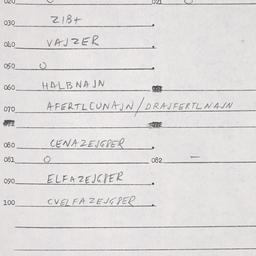 020 021
030 ZIBT
040 VAJZER
050 O
060 HALBNAJN
070 AFERTLCUNAJN/DRAJFERTLNAJN
080 CENAZEJGPER
081 O 082 —
090 ELFAZEJGPER
100 CVELFAZEJGPER